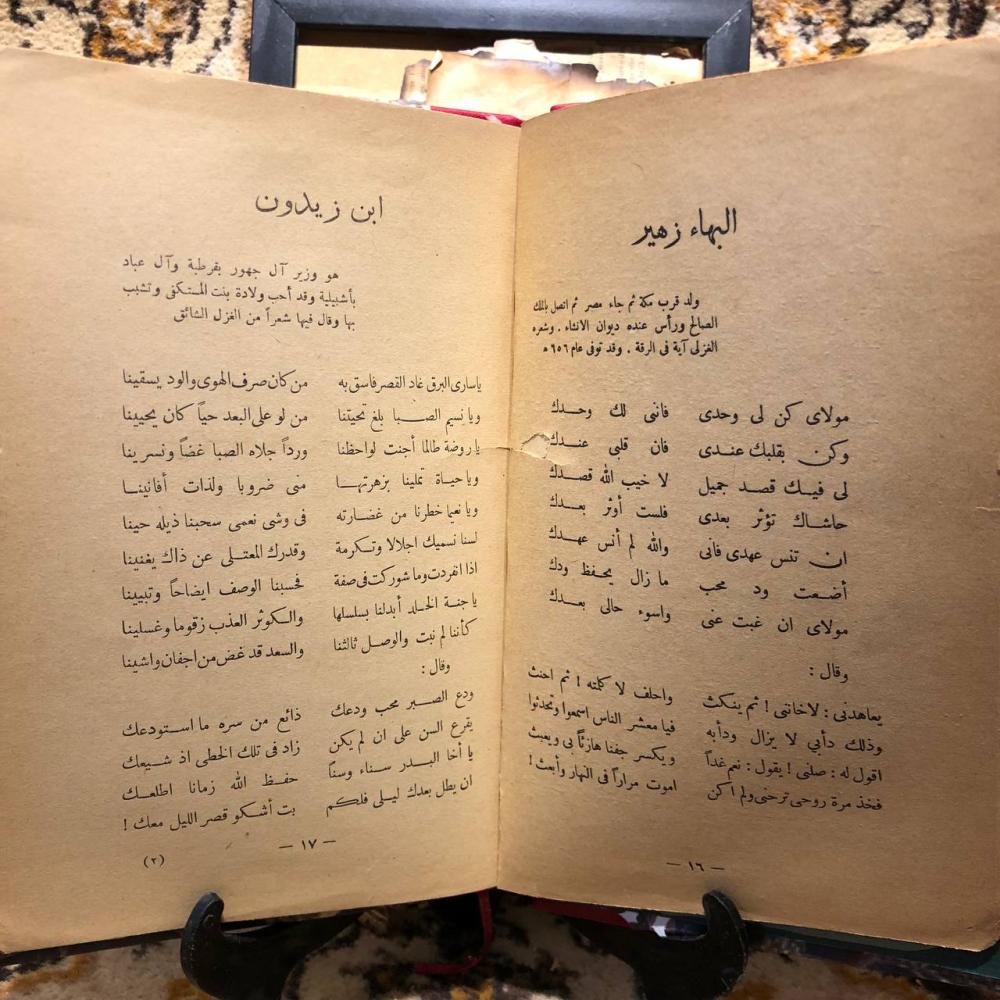 البهاء زهير
ولد قرب مكة ثم جاء مصر ثم اتصل بالملك
الصالح ورأس عنده ديوان الانشاء . وشعره
الغزلى آية فى الرقة . وقد توفى عام ٦٥٦ ه
مولاى كن لى وحدى فانى لك وحدك
وكن بقلبك عندى فان قلبى عندك
لى فيك قصد جميل لا خيب الله قصدك
حاشاك تؤثر بعدى فلست أوثر بعدك
ان تنس عهدى فانى والله لم أنس عهدك
أضعت ود محب ما زال يحفظ ودك
مولاى ان غبت عنى واسوء حالى بعدك
وقال :
يعاهدنى : لاخاننى ! ثم ينكث واحلف لا كلمته ! ثم احنث
وذلك دأبي لا يزال ودأبه فيا معشر الناس اسمعوا وتحدثوا
اقول له : صلنى ! يقول : نعم غداً ويكسر جفنا هازئاً بى ويعبث
فخذ مرة روحى ترحنى ولم اكن اموت مراراً فى النهار وأبعث !
— ١٦ —
ابن زيدون
هو وزير آل جهور بقرطبة وآل عباد
بأشبيلية وقد أحب ولادة بنت المستكفى وتشبب
بها وقال فيها شعراً من الغزل الشائق
ياسارى البرق غاد القصر فاسق به من كان صرف الهوى والود يسقينا
ويا نسيم الصبا بلغ تحيتنا من لو على البعد حياً كان يحيينا
يا روضة طالما أجنت لواحظنا ورداً جلاه الصبا غضاً ونسرينا
ويا حياة تملينا بزهرتها منى ضروبا ولذات أفانينا
ويا نعيما خطرنا من غضارته فى وشى نعمى سحبنا ذيله حينا
لسنا نسميك اجلالا وتكرمة وقدرك المعتلى عن ذاك يغنينا
اذا انفردت وما شوركت فى صفة فحسبنا الوصف ايضاحاً وتبيينا
يا جنة الخلد أبدلنا بسلسلها والكوثر العذب زقوما وغسلينا
كأننا لم نبت والوصل ثالثنا والسعد قد غض من اجفان واشينا
وقال :
ودع الصبر محب ودعك ذائع من سره ما استودعك
يقرع السن على ان لم يكن زاد فى تلك الخطى اذ شيعك
يا أخا البدر سناء وسناً حفظ الله زمانا اطلعك
ان يطل بعدك ليلى فلكم بت أشكو قصر الليل معك !
— ١٧ —
(٢)